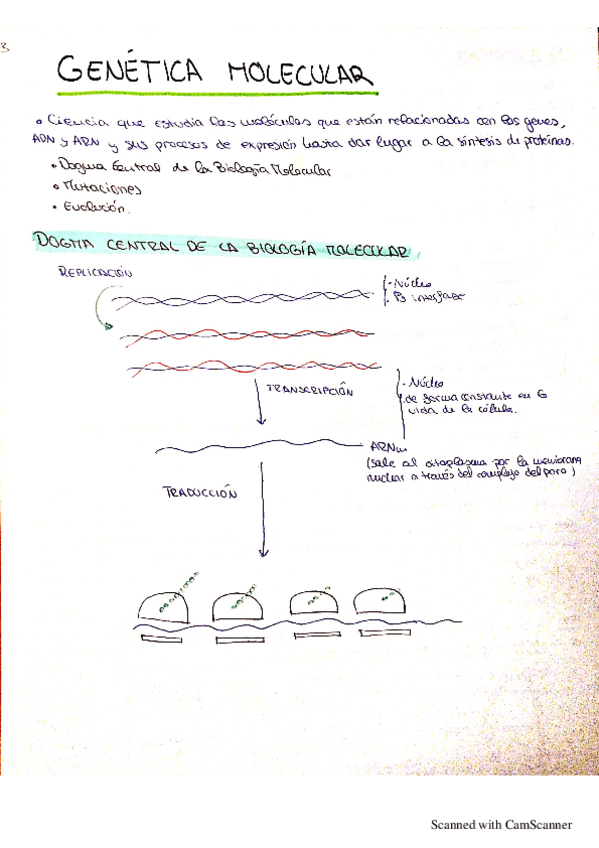 GENÉTICA MOLECULAR
• Ciencia que estudia las moléculas que están relacionadas con los genes,
ADN y ARN y sus procesos de expresión hasta dar lugar a la síntesis de proteínas.
• Dogma Central de la Biología Molecular
• Mutaciones
• Evolución.
DOGMA CENTRAL DE LA BIOLOGÍA MOLECULAR.
REPLICACIÓN
- Núcleo
interfase
TRANSCRIPCIÓN
- Núcleo
de forma constante en la
vida de la célula.
ARNm
(sale al citoplasma por la membrana
nuclear a través del complejo del poro)
TRADUCCIÓN
Scanned with CamScanner